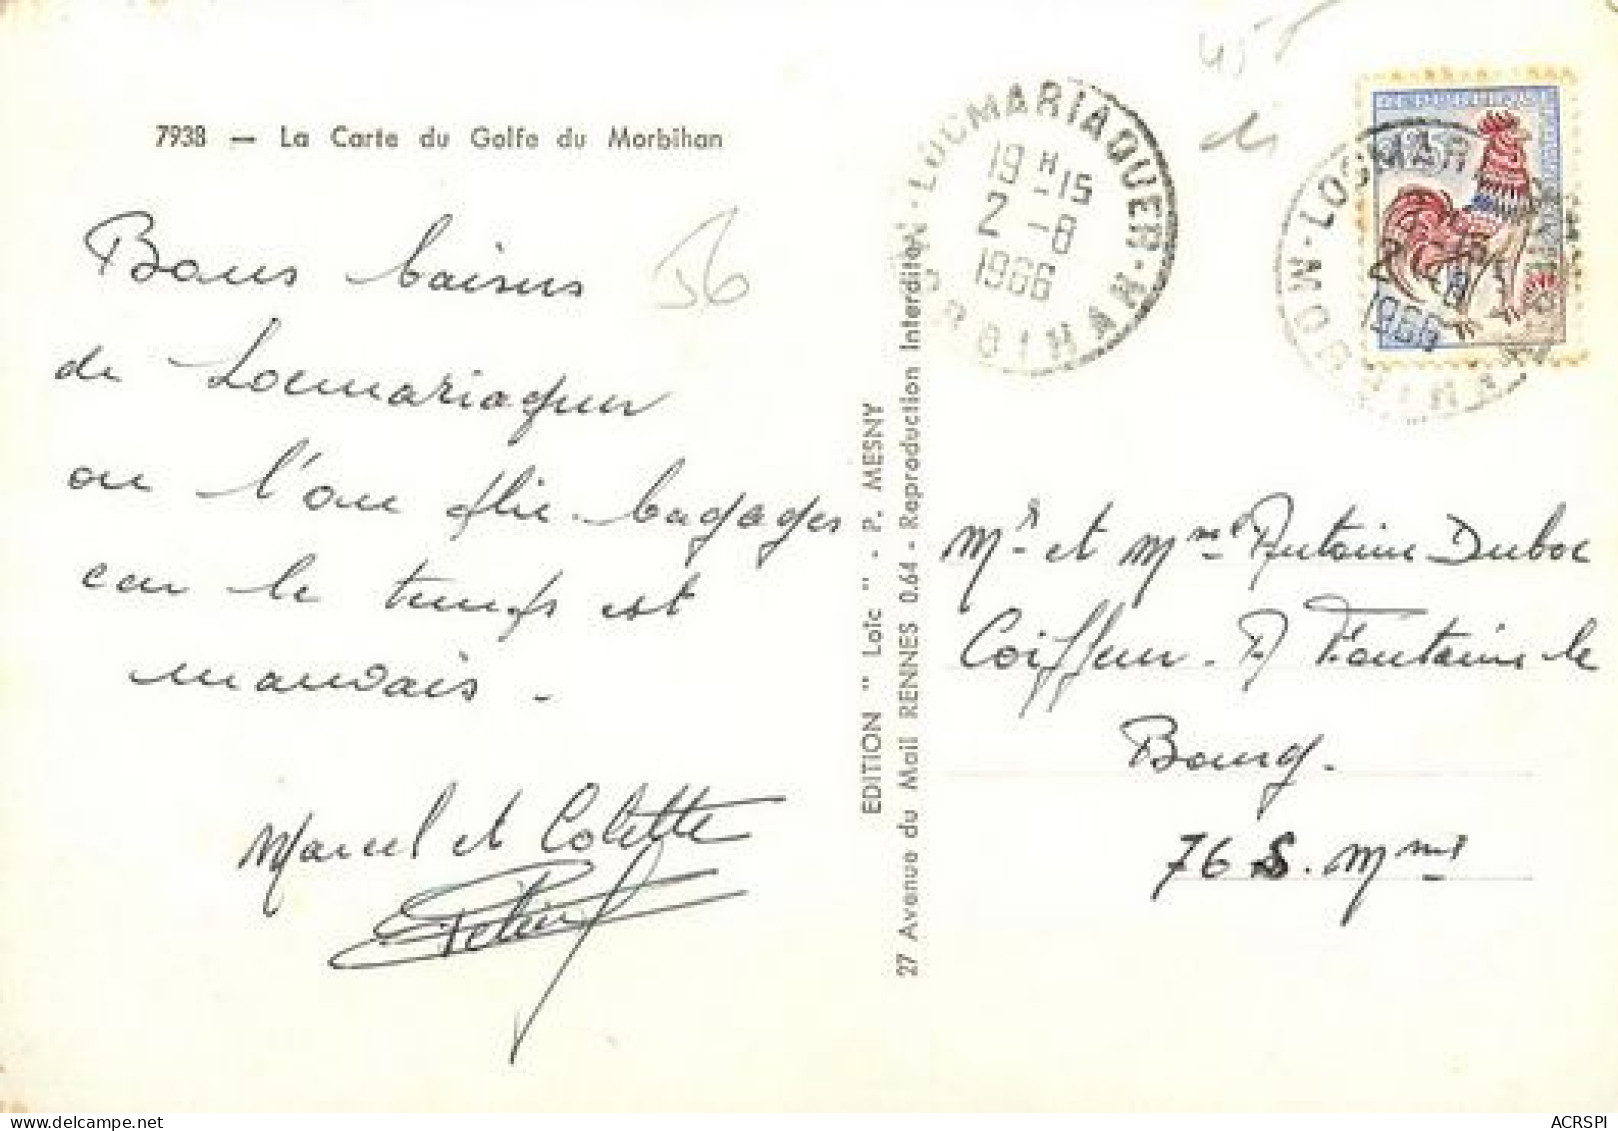 7938 — La Carte du Golfe du Morbihan
Bons baisers
de Locmariaquer
ou l'on plie bagages
car le temps est
mauvais.
Marcel et Colette
56
EDITION " Loïc " - P. MESNY
27 Avenue du Mail RENNES 0.64 - Reproduction Interdite
LOCMARIAQUER - MORBIHAN
19 H 15
2 - 8
1966
LOCMARIAQUER - MORBIHAN
2 - 8
1966
Mr et Mme Antoine Duboc
Coiffeur. A Fontaine le
Bourg.
76 S. Mme
ACRSPI